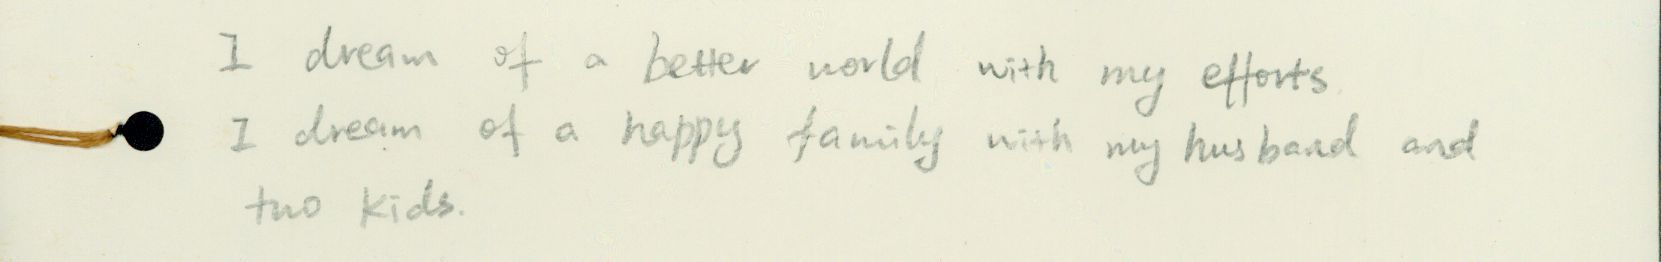 I dream of a better world with my efforts.
I dream of a happy family with my husband and
two kids.